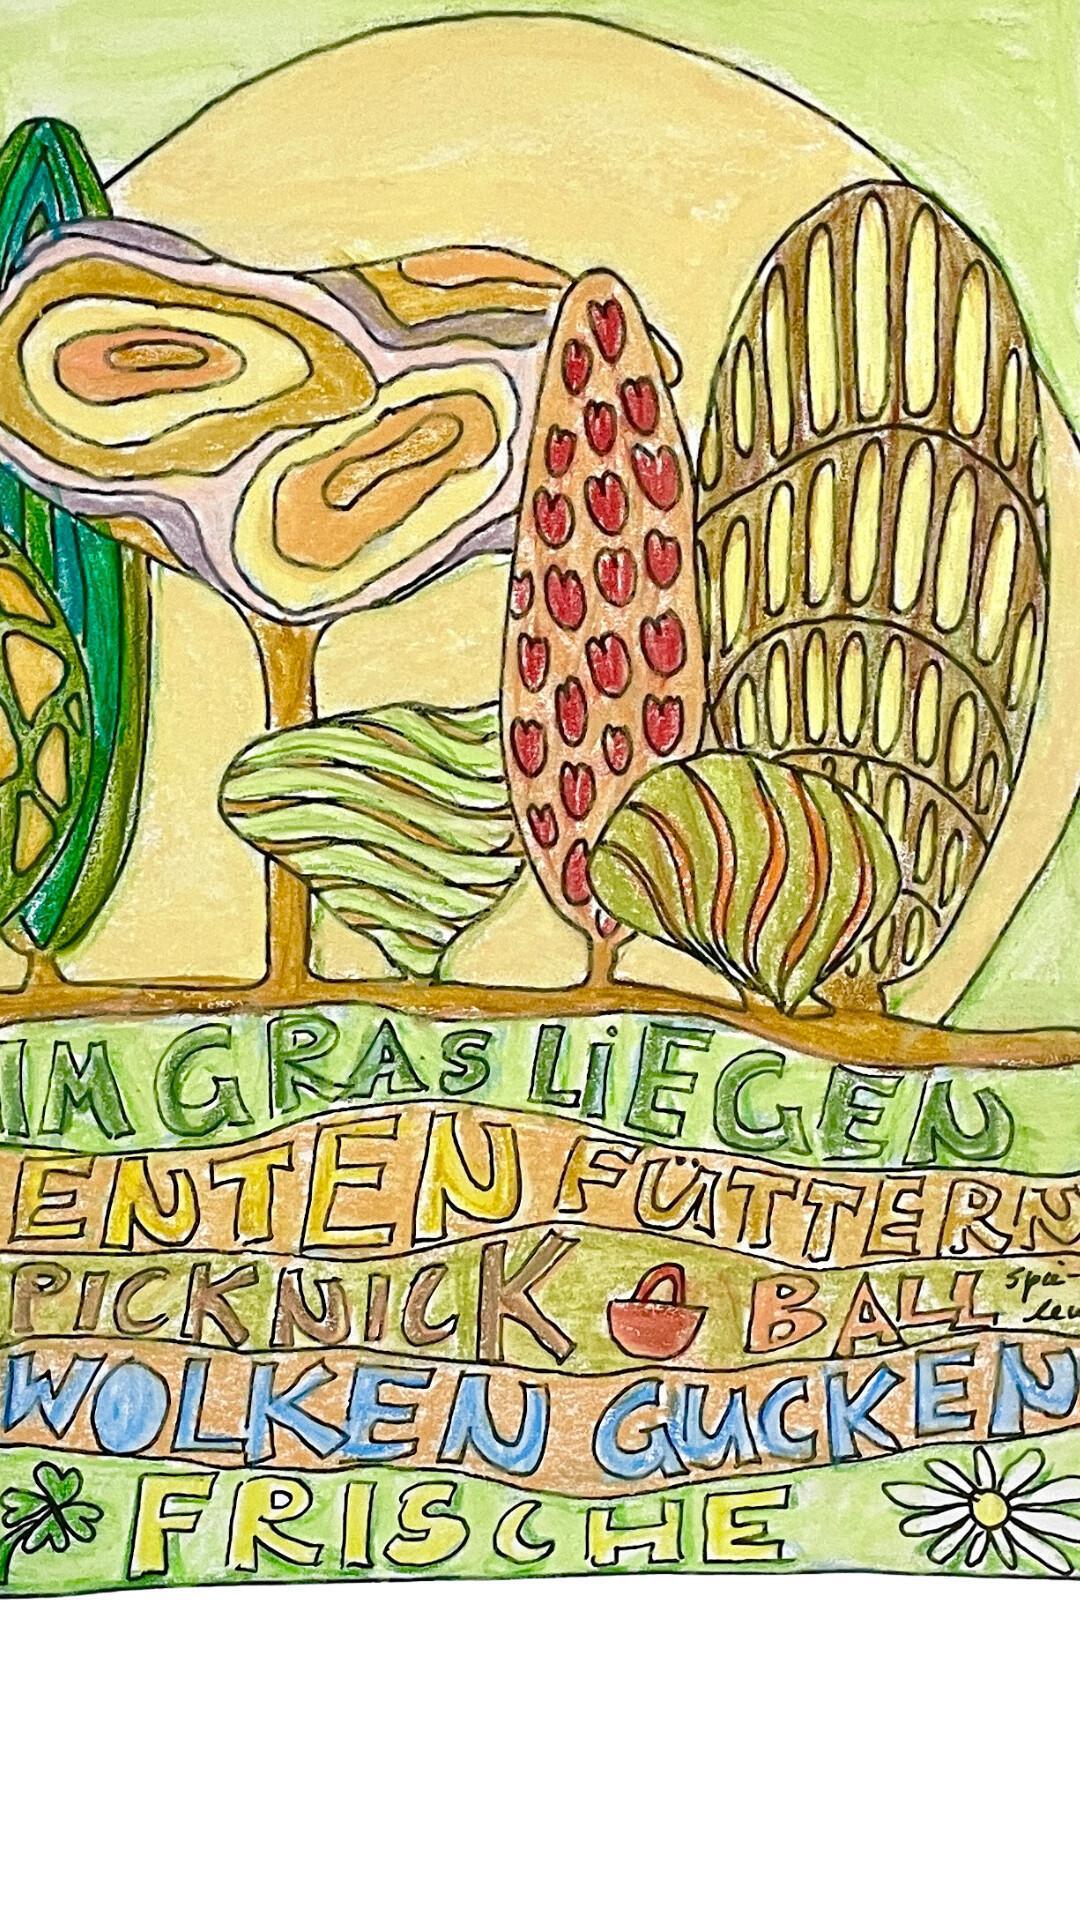 IM GRAS LiEGEN
ENTEN FÜTTERN
PICKNICK BALL spie-
len
WOLKEN GUCKEN
FRISCHE